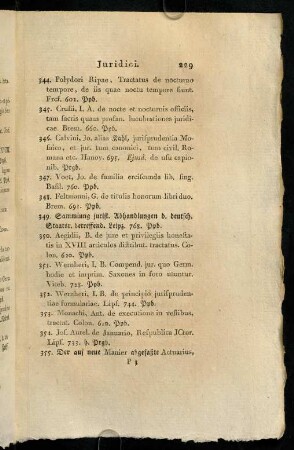 Juridici. 229
344. Polydori Ripae, Tractatus de nocturno
tempore, de iis quae noctu tempore fiunt.
Frcf. 602. Ppb.
345. Crusii, I. A. de nocte et nocturnis officiis,
tam sacris quam profan. lucubrationes juridi-
cae. Brem. 660. Ppb.
346. Calvini, Jo. alias Kahl, jurisprudentia Mo-
saica, et jur. tum canonici, tum civil. Ro-
mana etc. Hanov. 695. Ejusd. de usucapio-
nib. Prgb.
347. Voet, Jo. de familia erciscunda lib. sing.
Basil. 760. Ppb.
348. Feltmanni, G. de titulis honorum libri duo,
Brem. 691. Ppb.
349. Sammlung jurist. Abhandlungen d. deutsch.
Staater. betreffend. Leipz. 768. Ppb.
350. Aegidii, B. de jure et privilegiis honestatis
in XVIII articulos distribut. tractatus. Co-
lon. 620. Ppb.
351. Wernheri, I. B. Compend. jur. quo Germ.
hodie et inprim. Saxones in foro utuntur.
Viteb. 728. Ppb.
352. Wernheri, I. B. de principiis jurispruden-
tiae formulandae. Lips. 744. Ppb.
353. Monachi, Ant. de executione in vestibus,
tractat. Colon. 620. Ppb.
354. Jos. Aurel. de Januario, Respublica JCtor.
Lips. 733. h. Prgb.
355. Der auf neue Manier abgefaßte Actuarius,
P 3